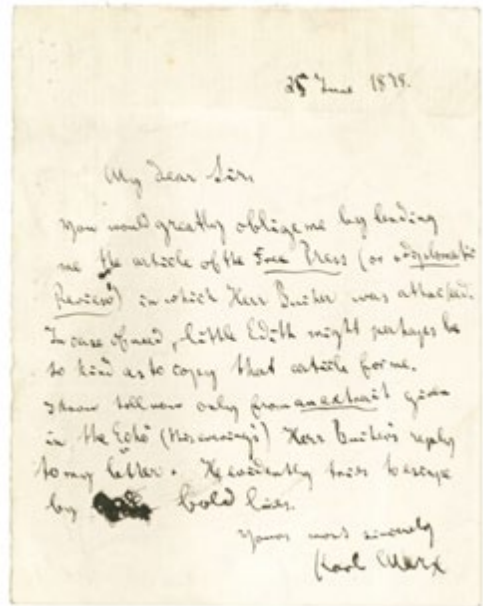 25 June 1878.
My dear Sir,
You would greatly oblige me by lending
me the article of the Free Press (or "Diplomatic
Review") in which Herr Bucher was attacked.
In case of need, little Edith might perhaps be
so kind as to copy that article for me.
I know till now only from an extract given
in the "Echo" (this evening's) Herr Bucher's reply
to my letter. He evidently tries
by bold lies.
Yours most sincerely
Karl Marx